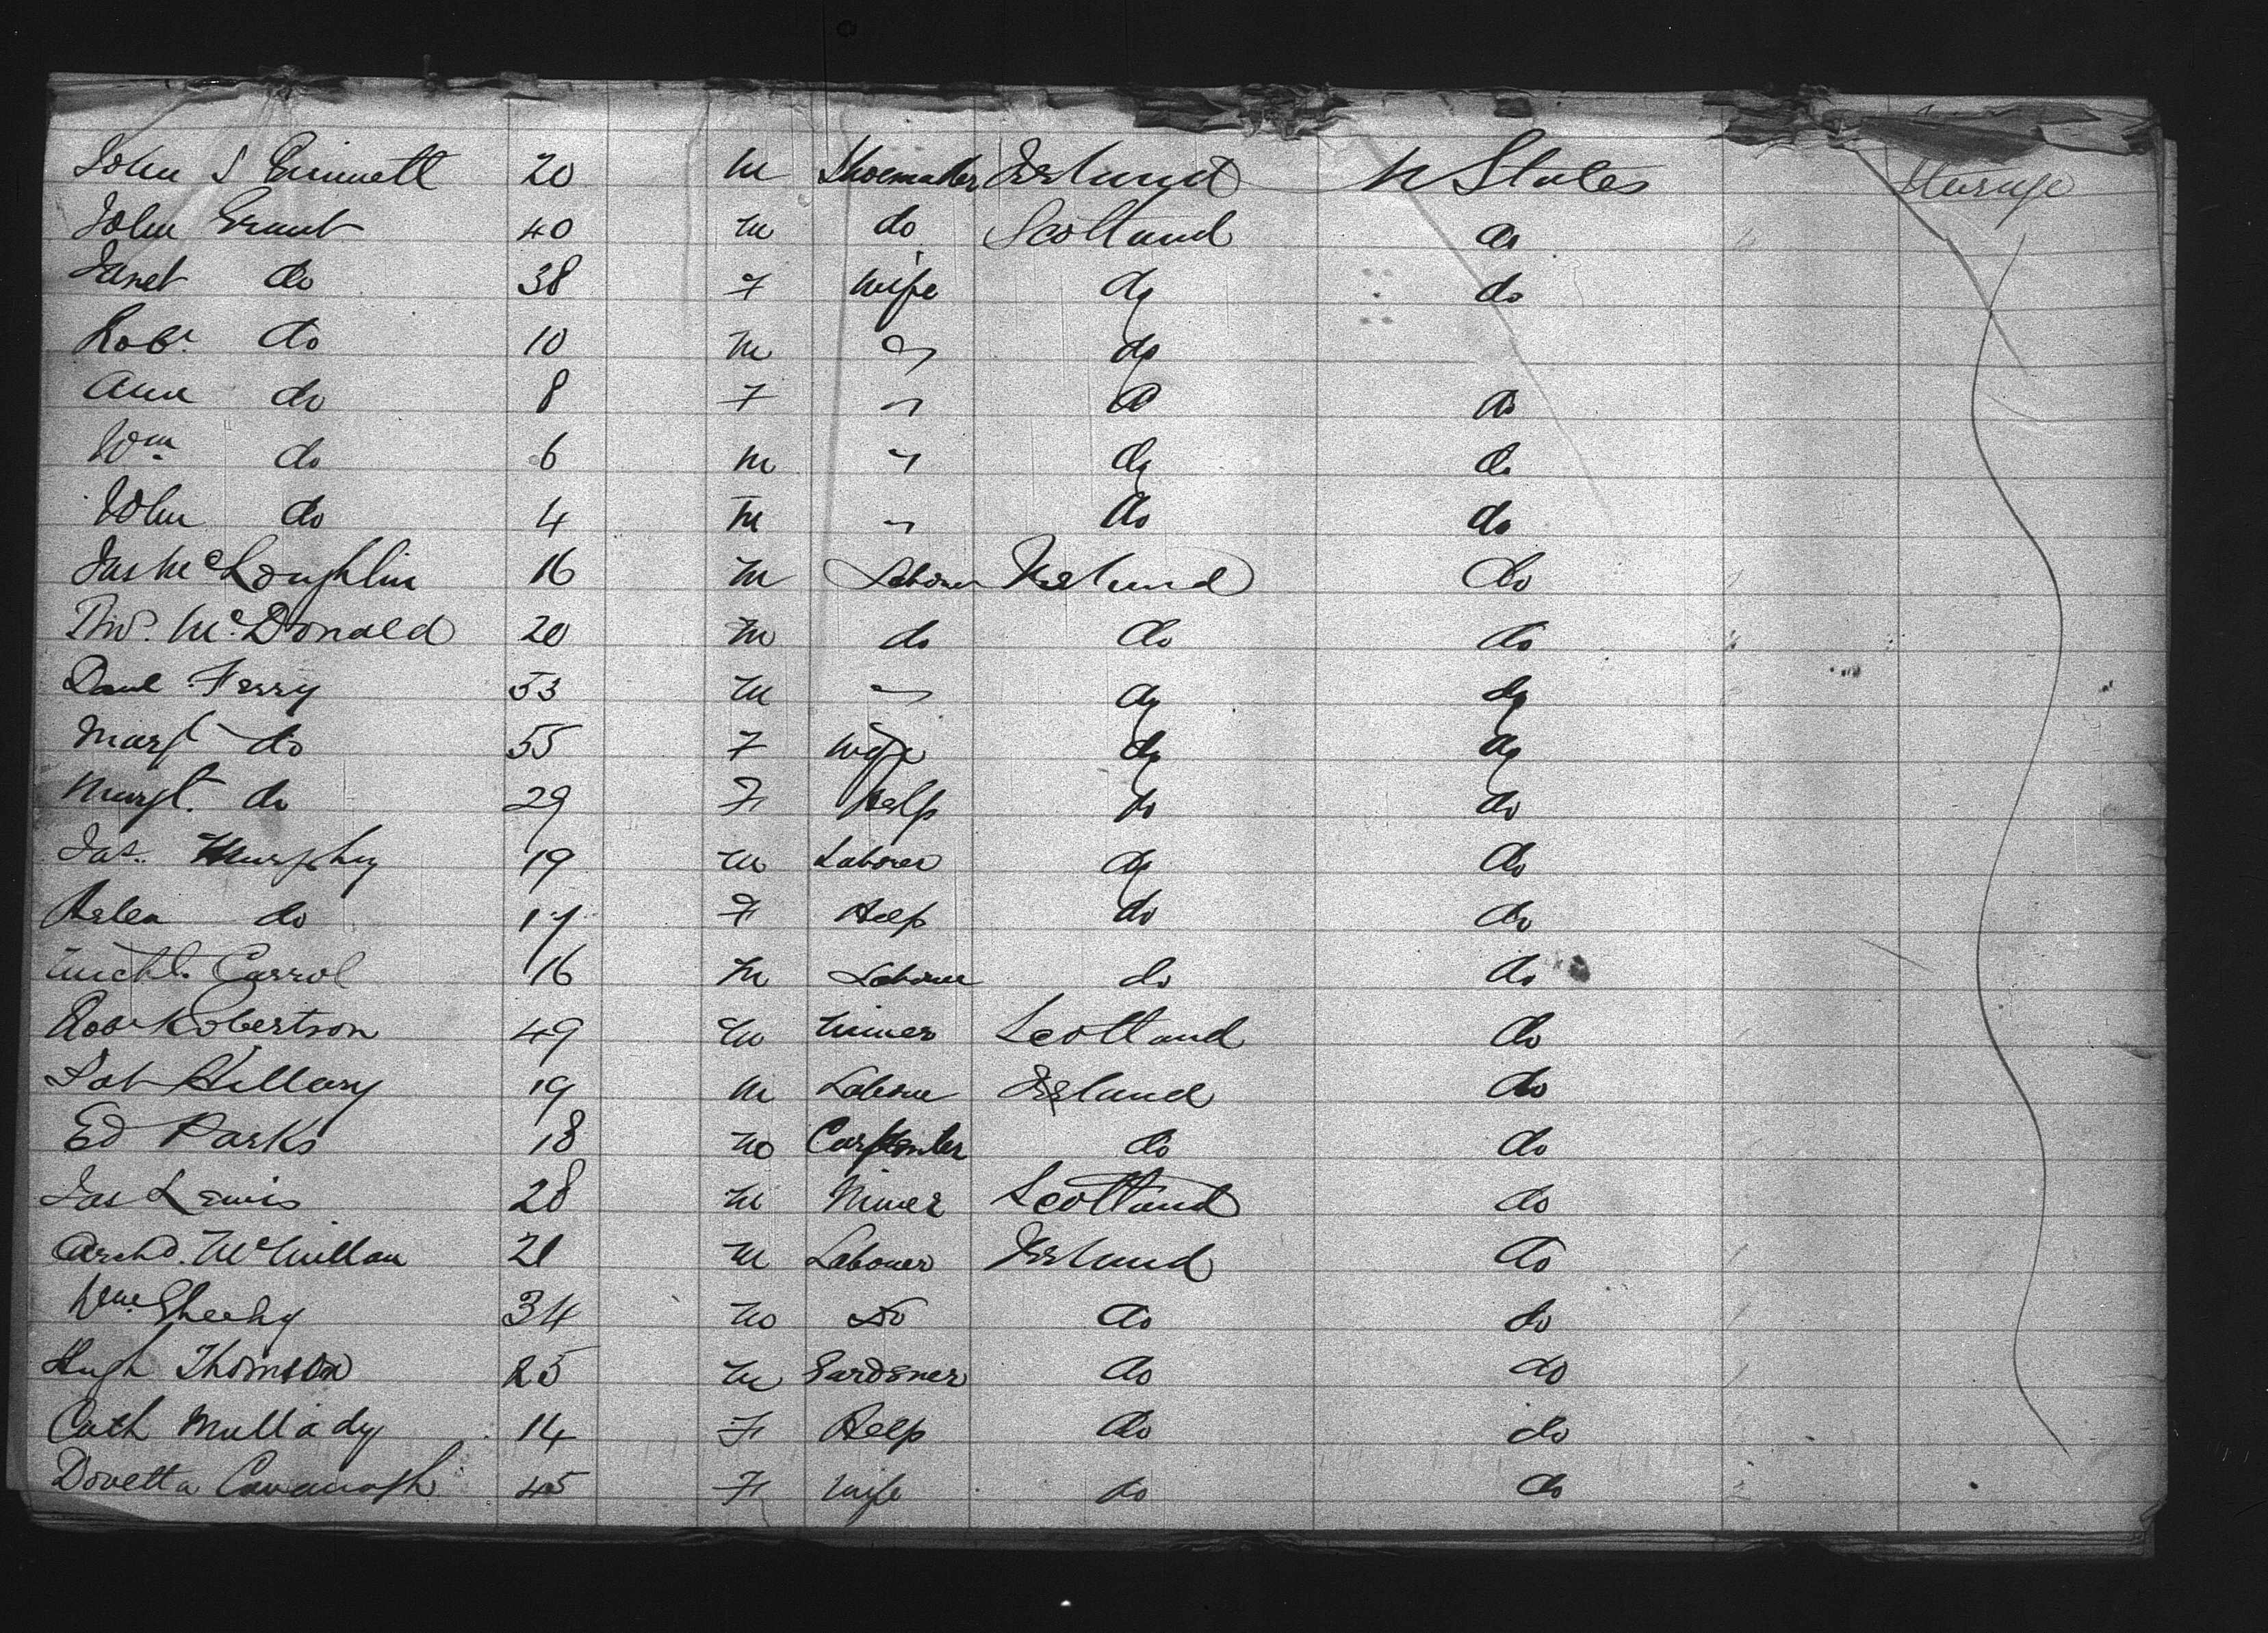 John S 20 m Shoemaker Ireland U States Sturage
John Grant 40 m do Scotland do
Janet do 38 F Wife do do
Robt. do 10 m " do
Ann do 8 F " do do
Wm do 6 m " do do
John do 4 m " do do
Jas McLoughlin 16 m Laborer Ireland do
McDonald 20 m do do do
Danl Ferry 53 m " do do
Margt do 55 F Wife do do
Margt. do 29 F Help do do
Jas. Murphy 19 m Laborer do do
Helen do 17 F Help do do
Michl. Carrol 16 m Laborer do do
Robt Robertson 49 m Miner Scotland do
Pat Hillary 19 m Laborer Ireland do
Ed Parks 18 m Carpenter do do
Jas Lewis 28 m Miner Scotland do
Archd. McMillan 21 m Laborer Ireland do
Wm. Sheehy 34 m Do do do
Hugh Thomson 25 m Gardener do do
Cath Mullady 14 F Help do do
Dovetta Cavanagh 45 F Wife do do